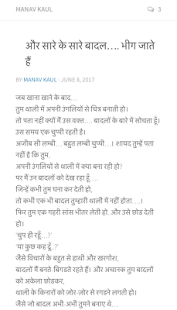 MANAV KAUL
3
और सारे के सारे बादल…. भीग जाते
हैं
BY MANAV KAUL · JUNE 8, 2017
जब खाना खाने के बाद…
तुम थाली में अपनी उंगलियों से चित्र बनाती हो।
तो पता नहीं क्यों मैं उस वक्त… बादलों के बारे में सोचता हूँ।
उस समय एक चुप्पी रहती है।
अजीब सी लम्बी… बहुत लम्बी चुप्पी…। शायद तुम्हें पता
नहीं है कि तुम,
अपनी उंगलियों से थाली में क्या बना रही हो?
पर मैं उन बादलों को देख रहा हूँ…
जिन्हें कभी तुम घना कर देती हो,
तो कभी एक भी बादल तुम्हारी थाली में नहीं होता…।
फिर तुम एक गहरी सांस भीतर लेती हो..और उसे छोड़ देती
हो।
'चुप ही रहूँ…?'
'या कुछ कह दूँ..?'
जैसे विचारों के बहुत से हाथी और खरगोश,
बादलों में बनते बिगड़ते रहते हैं। और अचानक तुम बादलों
को अकेला छोड़कर,
थाली के किनारों को ज़ोर-ज़ोर से रगड़ने लगती हो।
जैसे जो बादल अभी-अभी तुमने बनाए थे…